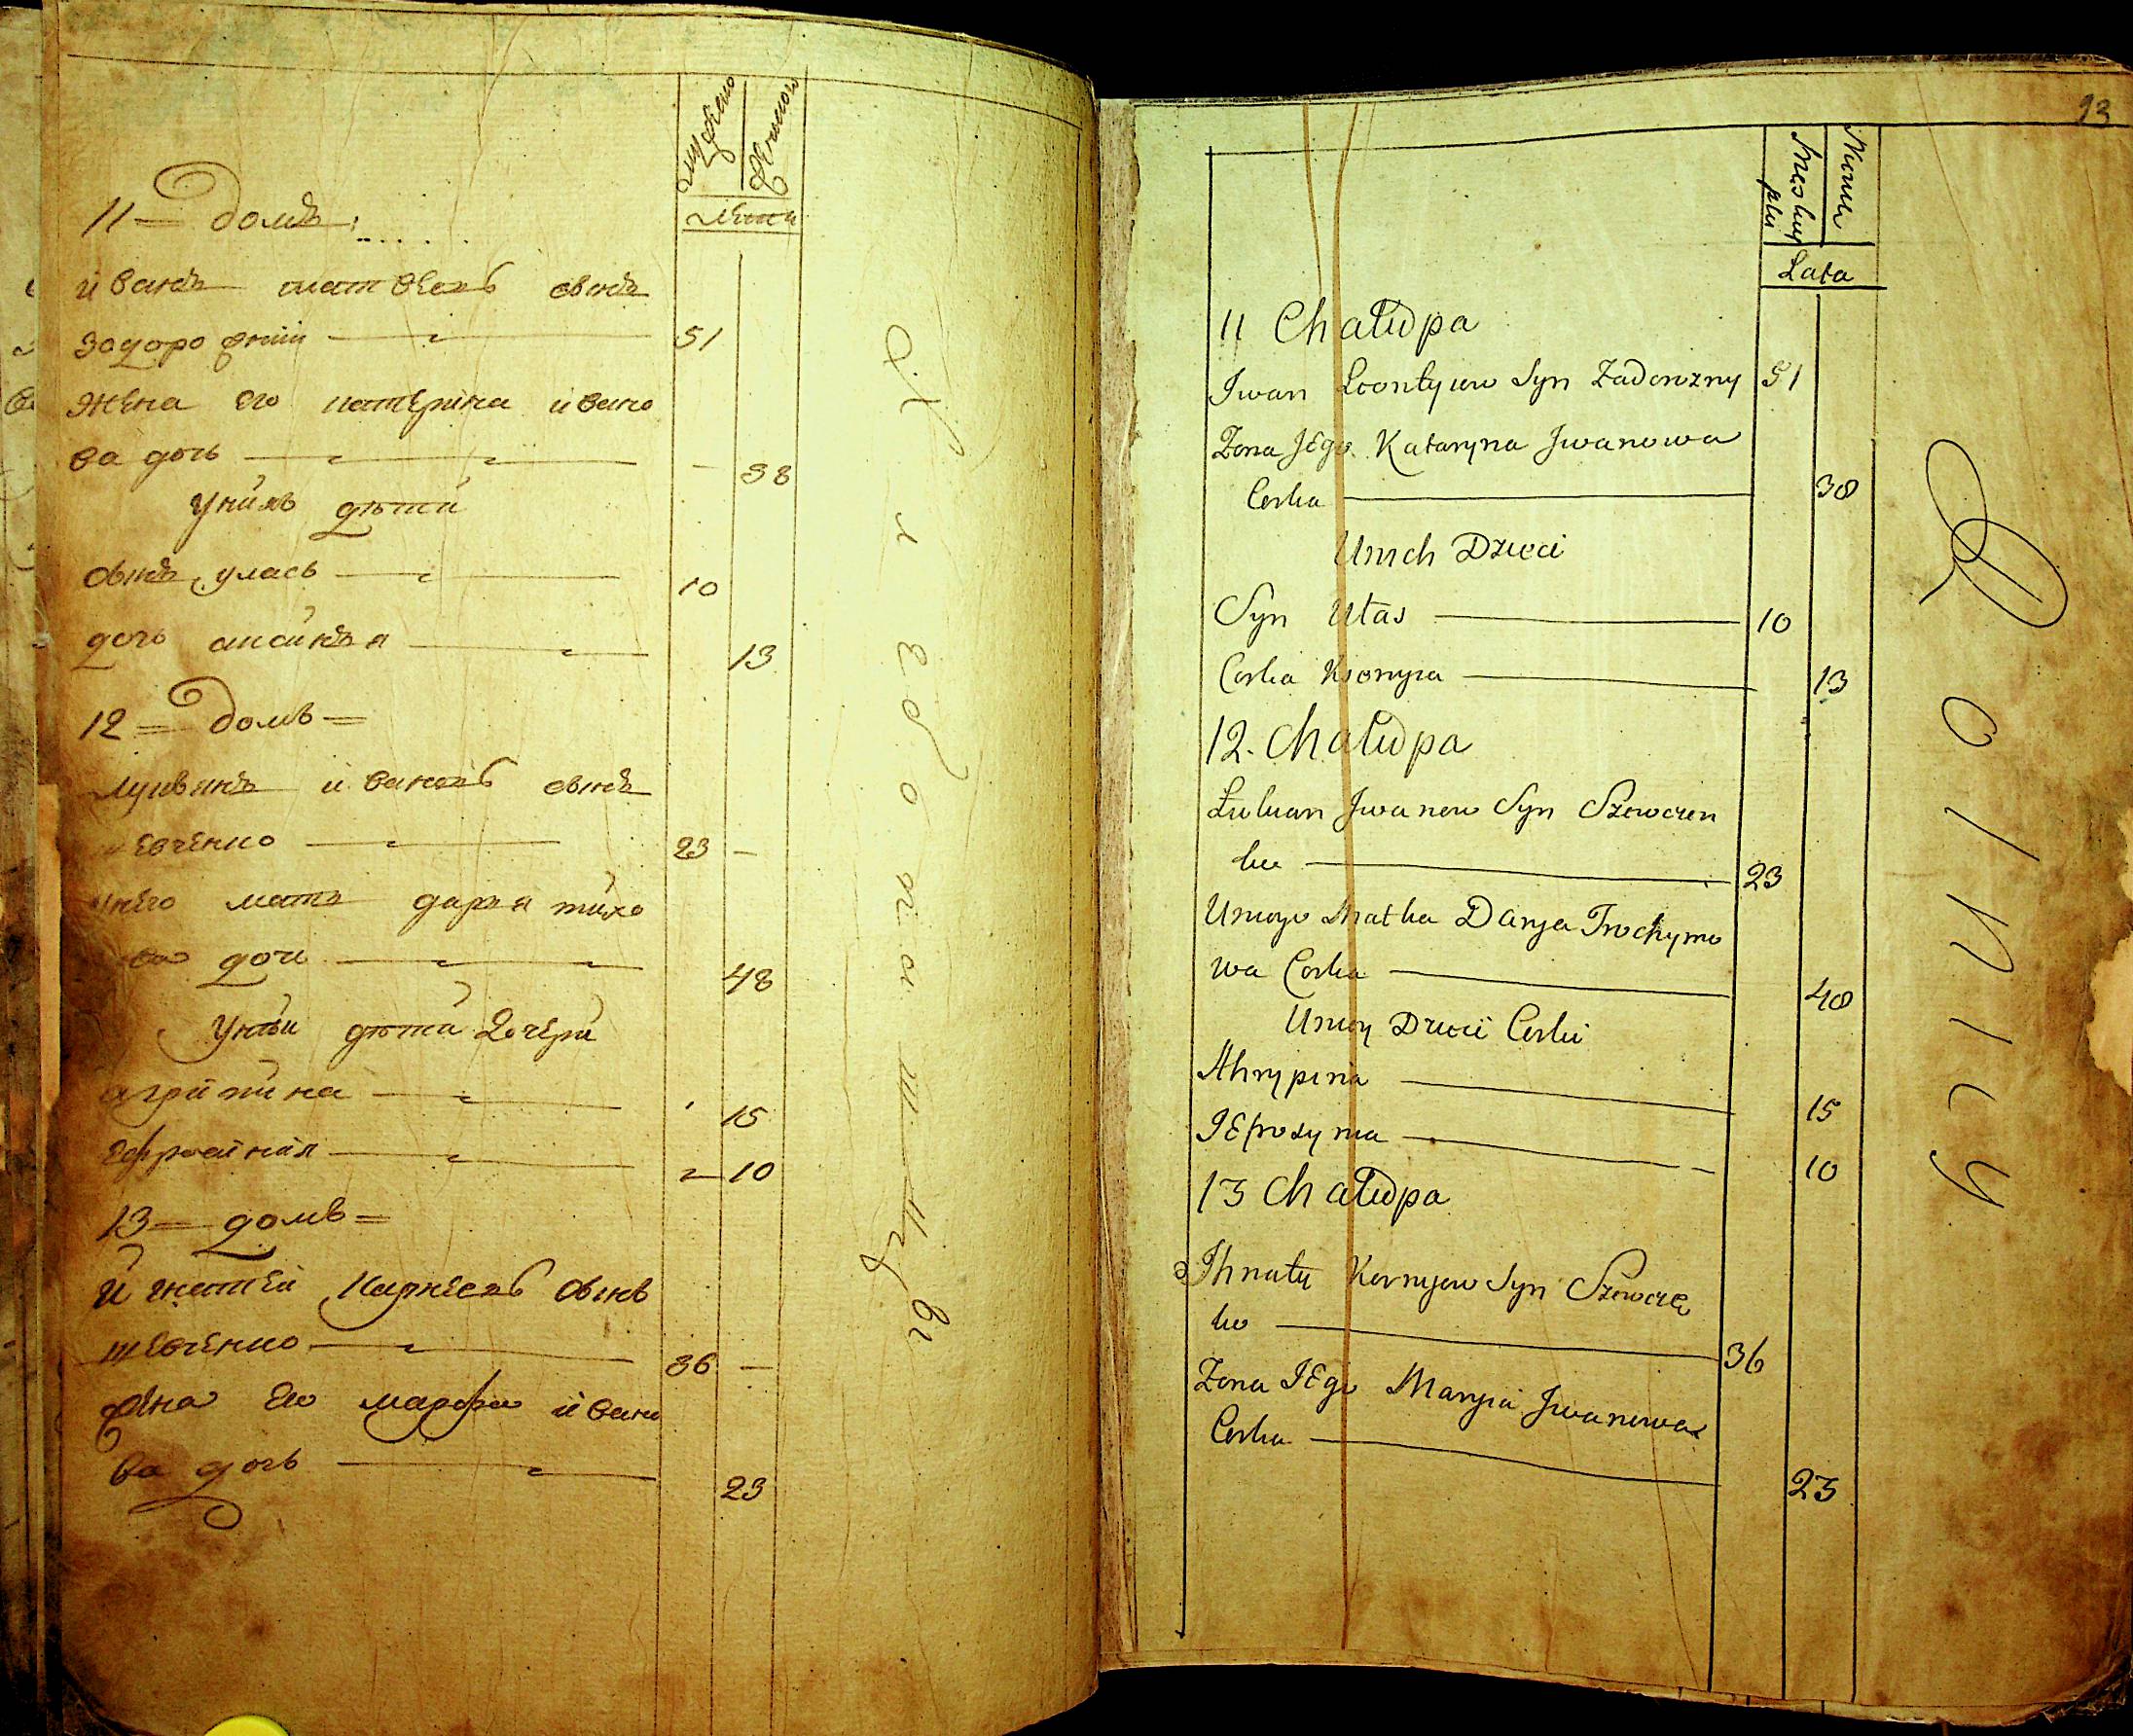 мужеска
женска
лѣта
11 = домъ
иванъ матвѣевъ сынъ
задорожний 51
жена его катерина ивано
ва дочь - 38
У нихъ дѣти
сынъ уласъ 10
дочь аксинъя 13
12 = домъ =
лукъянъ ивановъ сынъ
шевченко 23 -
у него мать даръя тихо
ва дочь 48
У нѣи дѣти дочери
агрипина 15
ефросиния 10
13 = домъ =
игнатей карнѣевъ сынъ
шевченко 36 -
жена его марфа ивано
ва дочь 23
Хлебопашцы
93
Męskiey płci
Lata
11 Chałupa
Iwan Leontyiew Syn Zadorozny 51
Zona JEgo Kataryna Jwanowa
Corka 38
Unich Dzieci
Syn Ułas 10
Corka Ksenyia 13
12. Chałupa
Łukian Jwanow Syn Szewczen
ko 23
Uniego Matka Darya Trochymo
wa Corka 48
Unieÿ Dzieci Corki
Ahrypina 15
JEfrosynia 10
13 Chałupa
Ihnatÿ Kornyiew Syn Szewcze
ko 36
Zona JEgo Maryia Jwanowa
Corka 23
Rolnicy